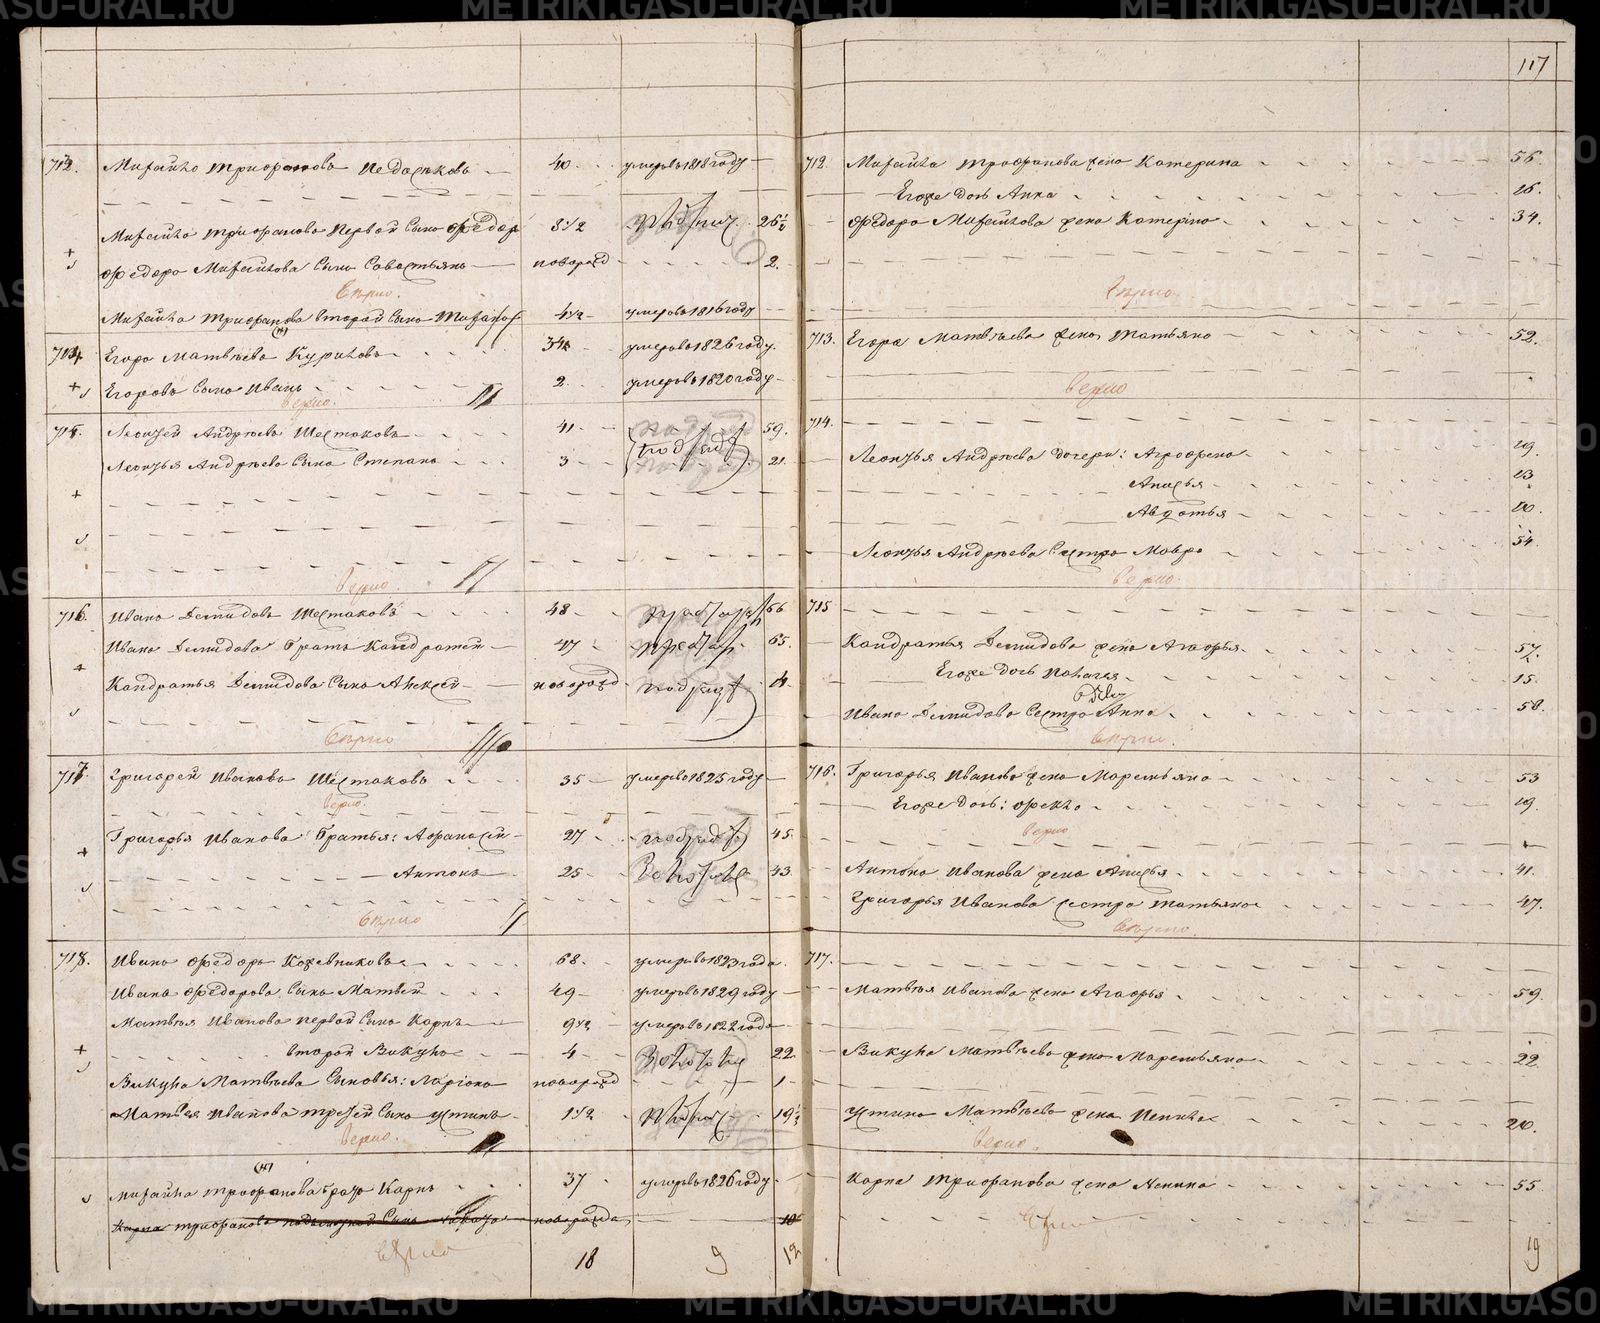 117
712. Михайло Трифановъ 40 умеръ в 1818 году
Михайла Трифанова первой сынъ Федоръ 8 1/2 26 1/2
Федора Михайлова сынъ Савостьянъ новорожд 2.
верно.
Михайла Трифанова второй сынъ 4 1/2 умеръ в 1816 году
Егоръ Матвѣевъ Куриловъ 34 умеръ в 1826 году
Егоровъ сынъ Иванъ 2 умеръ в 1820 году
верно.
Леонтей Андрѣевъ Шестаковъ 41 59.
Леонтья Андрѣева сынъ Степанъ 3 21.
верно
716. Иванъ Демидовъ Шестаковъ 48 66
Ивана Демидова братъ Кандратей 47 65.
Кандратья Демидова сынъ Алексей новорожд
верно
717. Григорей Ивановъ Шестаковъ 35 умеръ в 1825 году
верно.
Григорья Иванова братья: Афанасей 27 45.
Антонъ 25 43.
верно
718. Иванъ Федоровъ Кожевниковъ 68. умеръ в 1823 года
Ивана Федорова сынъ Матвей 49 умеръ 1829 году
Матвея Иванова первой сынъ Карпъ 9 1/2 умеръ в 1822 года
второй Викулъ 4 22.
Викула Матвѣева сыновья: Ларіонъ новорожд 1
Матвея Иванова третей сынъ Устинъ 1 1/2 19 1/2
верно.
Михайла Трофанова братъ Карпъ 37 умеръ в 1826 году
верно
18 9 12
712. Михайла Трофанова жена Катерина 56.
Егоже дочь Анна 16.
Федора Михайлова жена Катерина 34.
верно
713. Егора Матвѣева жена Татьяна 52.
верно
714.
Леонтья Андрѣева дочери: Агрофена 19.
Анисья 13
Авдотья 10.
Леонтья Андрѣева сестра Мавра 54.
верно
715
Кандратья Демидова жена Агафья 57.
Егоже дочь Палагея 15.
Ивана Демидова сестра Анна 58.
верно.
716. Григорья Иванова жена Маремьяна 53
Егоже дочь: Фекла 19.
верно
Антона Иванова жена Анисья 41.
Григорья Иванова сестра Татьяна 47.
верно.
717.
Матвея Иванова жена Агафья 59.
Викула Матвѣева жена Маремьяна 22
Устина Матвѣева жена Ненила 20.
верно.
Карпа Трифанова жена Ненила 55
верно
19
METRIKI.GASU-URAL.RU